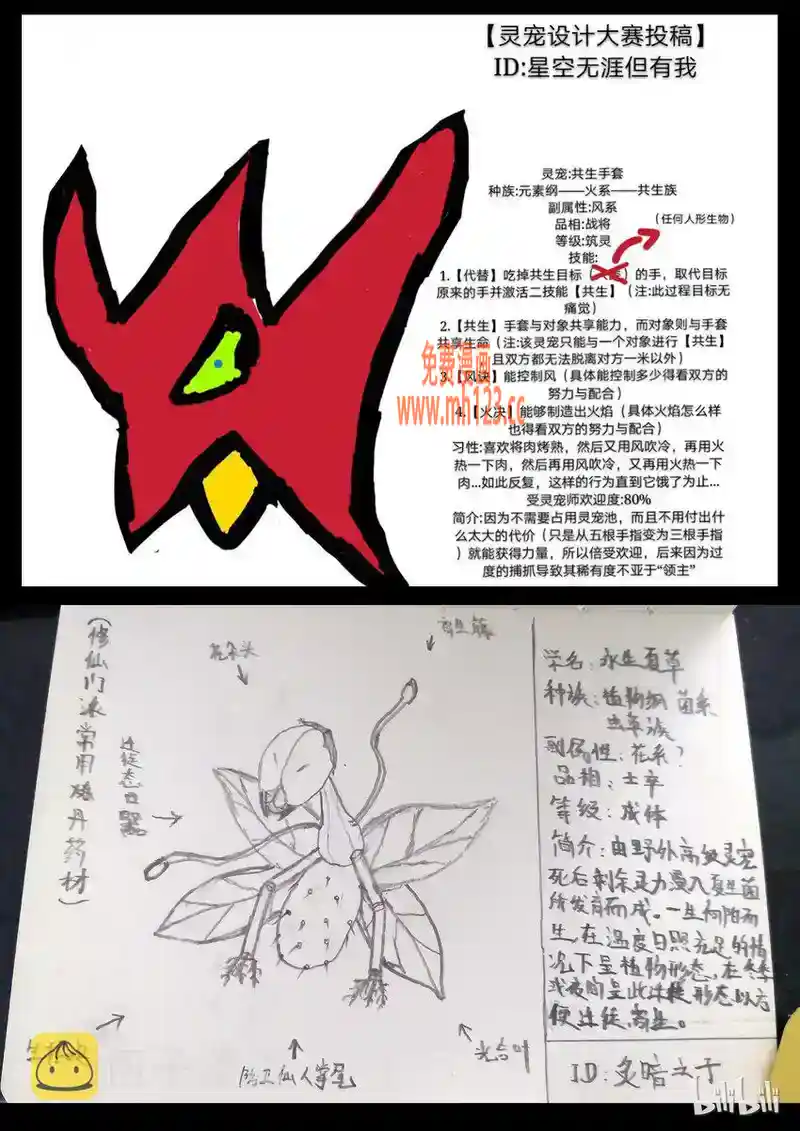 【灵宠设计大赛投稿】
ID:星空无涯但有我
灵宠:共生手套
种族:元素纲——火系——共生族
副属性:风系
品相:战将
(任何人形生物)
等级:筑灵
技能:
1.【代替】吃掉共生目标( )的手，取代目标
原来的手并激活二技能【共生】(注:此过程目标无
痛觉)
2.【共生】手套与对象共享能力，而对象则与手套
共享生命(注:该灵宠只能与一个对象进行【共生】
且双方都无法脱离对方一米以外)
3.【风诀】能控制风(具体能控制多少得看双方的
努力与配合)
4.【火决】能够制造出火焰(具体火焰怎么样
也得看双方的努力与配合)
习性:喜欢将肉烤熟，然后又用风吹冷，再用火
热一下肉，然后再用风吹冷，又再用火热一下
肉...如此反复，这样的行为直到它饿了为止...
受灵宠师欢迎度:80%
简介:因为不需要占用灵宠池，而且不用付出什
么太大的代价(只是从五根手指变为三根手指
)就能获得力量，所以倍受欢迎，后来因为过
度的捕抓导致其稀有度不亚于“领主”
免费漫画
www.mh123.cc
(修仙门派常用炼丹药材)
花朵头
寄生藤
迁徙态口器
光合叶
仙人掌尾
学名:永生夏草
种族:植物纲 菌系
虫草族
副属性:花系?
品相:士卒
等级:成体
简介:由野外高级灵宠
死后剩余灵力漫入夏生菌
所发育而成。一生向阳而
生,在温度日照充足的情
况下呈植物形态,在冬季
或夜间呈此迁徙形态以方
便迁徙,寄生。
ID:炙暗之子
bilibili